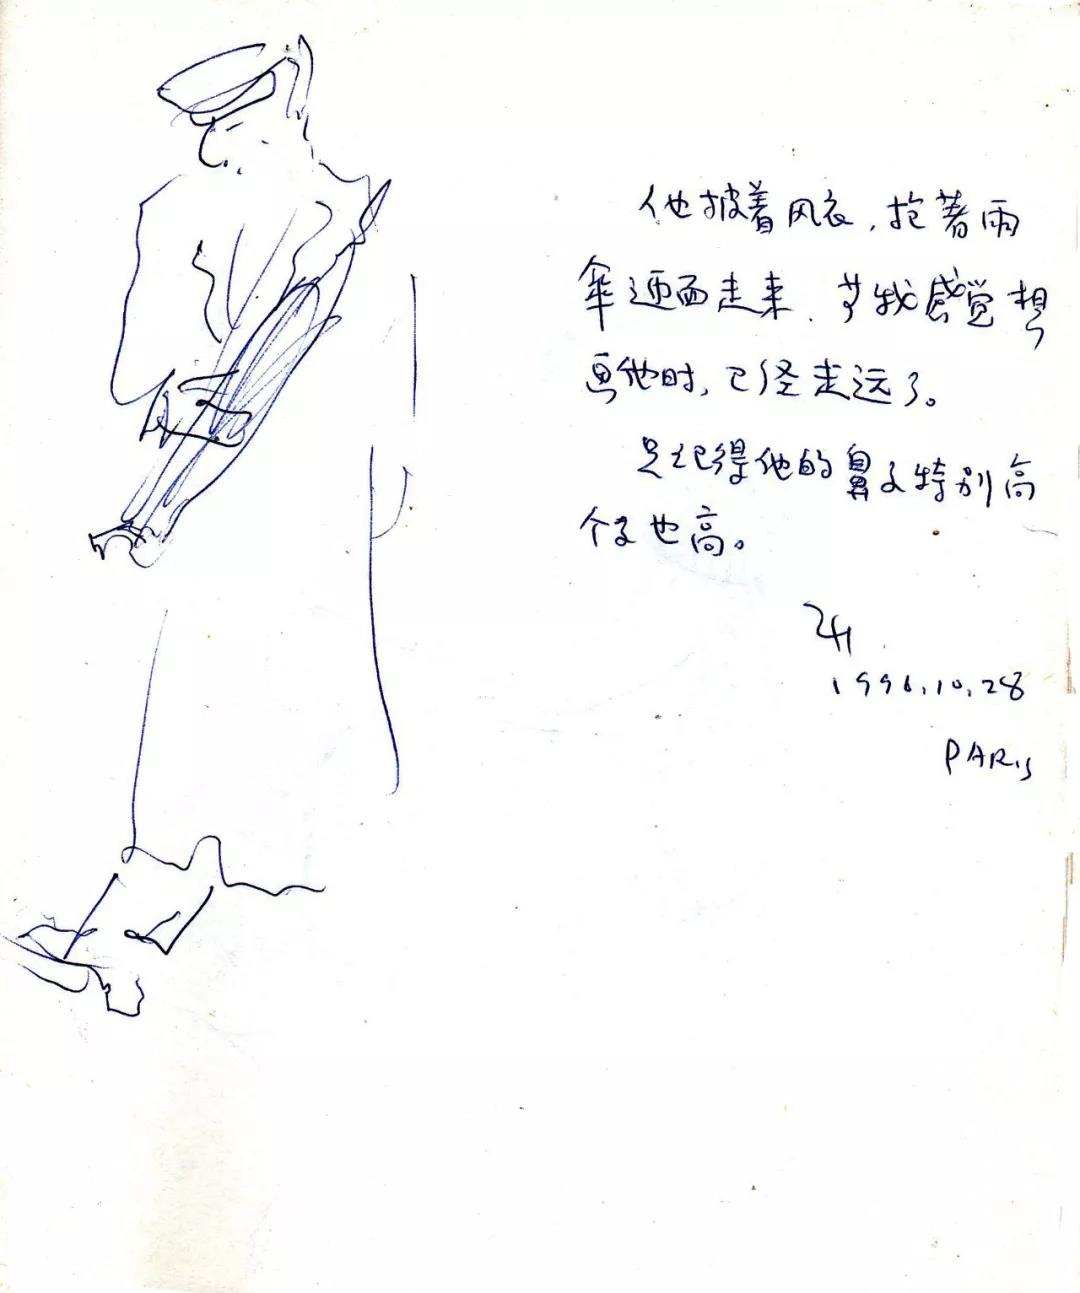 他披着风衣，抱着雨
伞迎面走来、当我感觉想
画他时，已经走远了。
只记得他的鼻子特别高
个子也高。
1996.10.28
PARIS